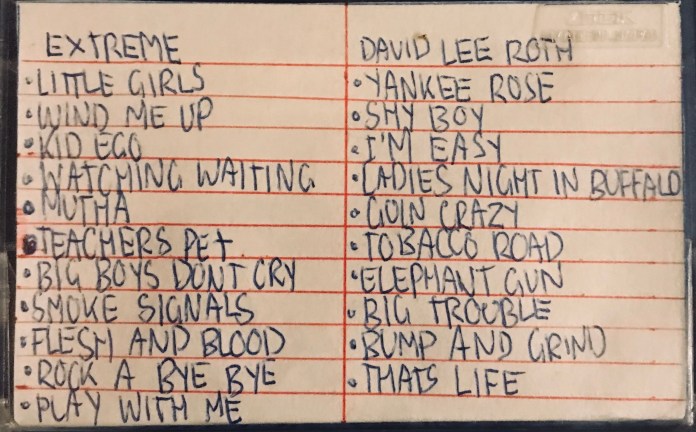 EXTREME
•LITTLE GIRLS
•WIND ME UP
•KID EGO
•WATCHING WAITING
•MUTHA
•TEACHERS PET
•BIG BOYS DONT CRY
•SMOKE SIGNALS
•FLESH AND BLOOD
•ROCK A BYE BYE
•PLAY WITH ME
DAVID LEE ROTH
•YANKEE ROSE
•SHY BOY
•I'M EASY
•LADIES NIGHT IN BUFFALO
•GOIN CRAZY
•TOBACCO ROAD
•ELEPHANT GUN
•BIG TROUBLE
•BUMP AND GRIND
•THATS LIFE